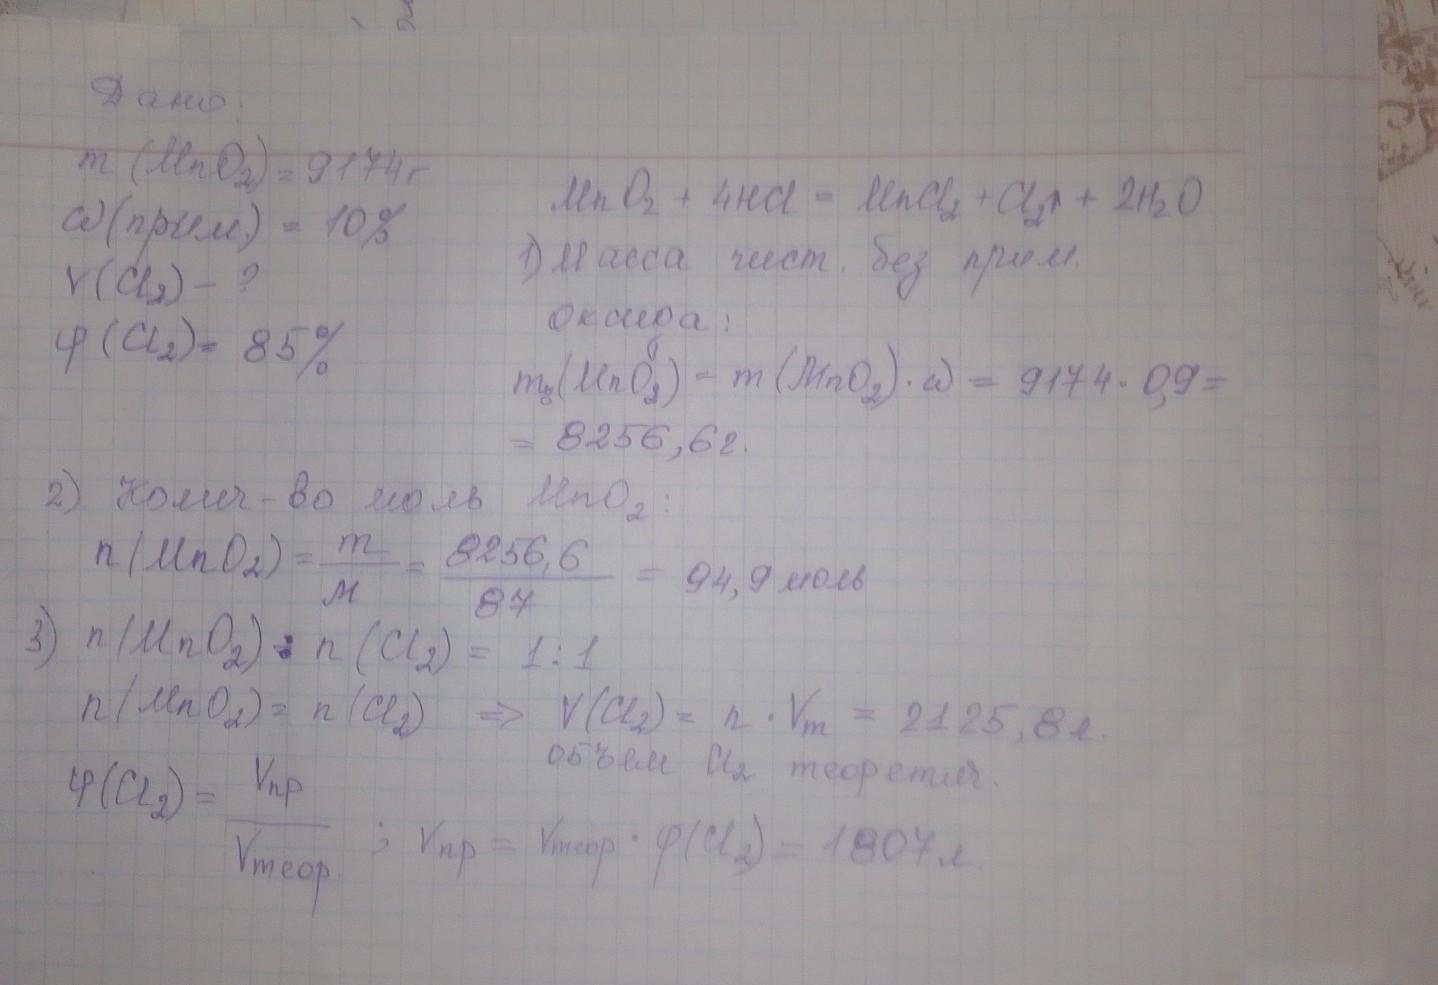 Дано:
m (MnO2) = 9174г
ω(прим.) = 10%
V(Cl2) - ?
φ(Cl2) = 85%
MnO2 + 4HCl = MnCl2 + Cl2↑ + 2H2O
1) Масса чист. без прим.
оксида:
(MnO2) = m (MnO2) · ω = 9174 · 0,9 =
= 8256,6г.
2) Колич-во моль MnO2:
n(MnO2) = m/M = 8256,6/87 = 94,9 моль
3) n(MnO2) : n(Cl2) = 1:1
n(MnO2) = n(Cl2) => V(Cl2) = n · Vm = 2125,8л.
объем Cl2 теоретич.
φ(Cl2) = Vпр/Vтеор. ; Vпр = Vтеор · φ(Cl2) = 1807л.